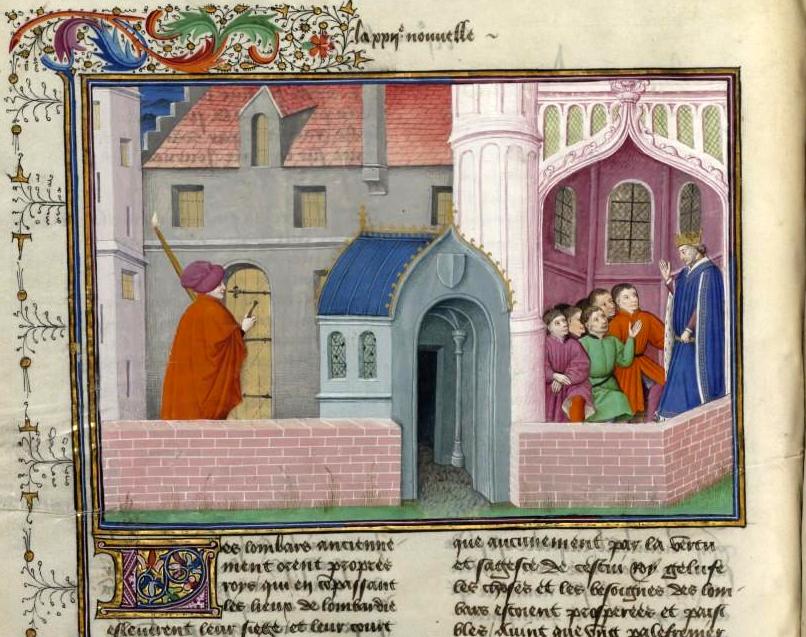 la xxiiᵉ nouuelle
Les lombars ancienne
ment orent propres
roys qui en trespassant
les lieux de lombardie
esleuerent leur siege et leur court
que aucunement par la vertu
et sagesse de cestui roy geluse
les choses et les besoignes des lom
bars estoient prosperees et paisi
bles Auint que vng palefrenier